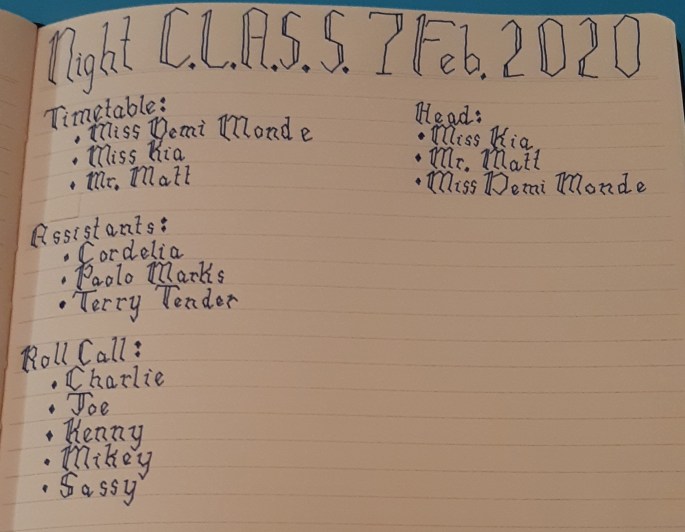 Night C.L.A.S.S. 7 Feb. 2020
Timetable:
• Miss Demi Monde
• Miss Kia
• Mr. Matt
Head:
• Miss Kia
• Mr. Matt
• Miss Demi Monde
Assistants:
• Cordelia
• Paolo Marks
• Terry Tender
Roll Call:
• Charlie
• Joe
• Kenny
• Mikey
• Sassy